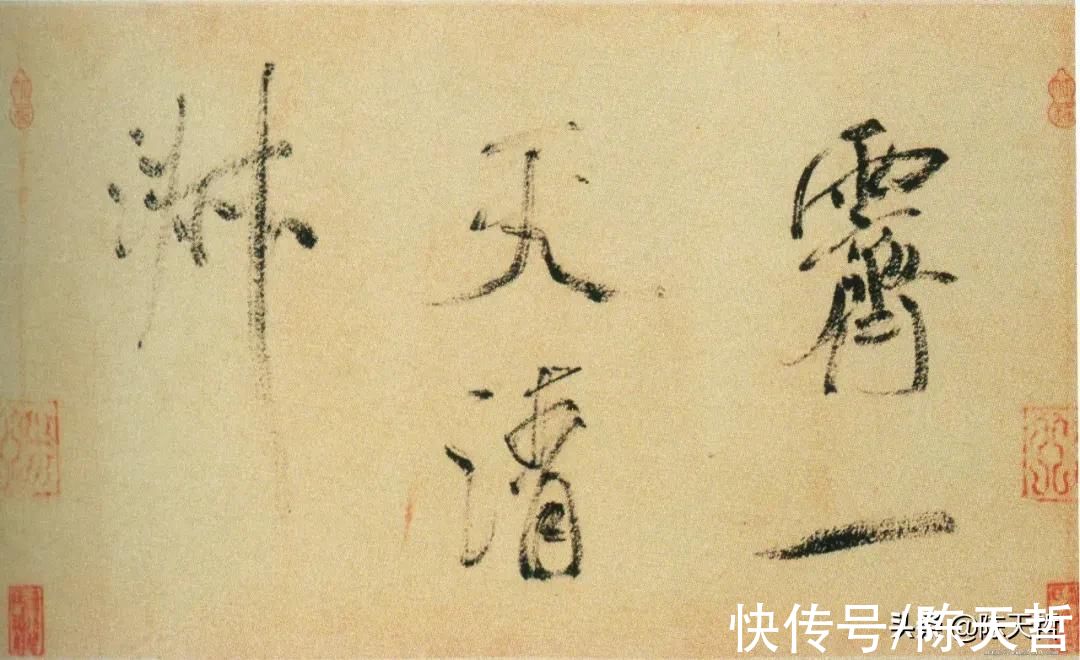 霽一
天清
淑
快传号/陈天哲
头条 @陈天哲